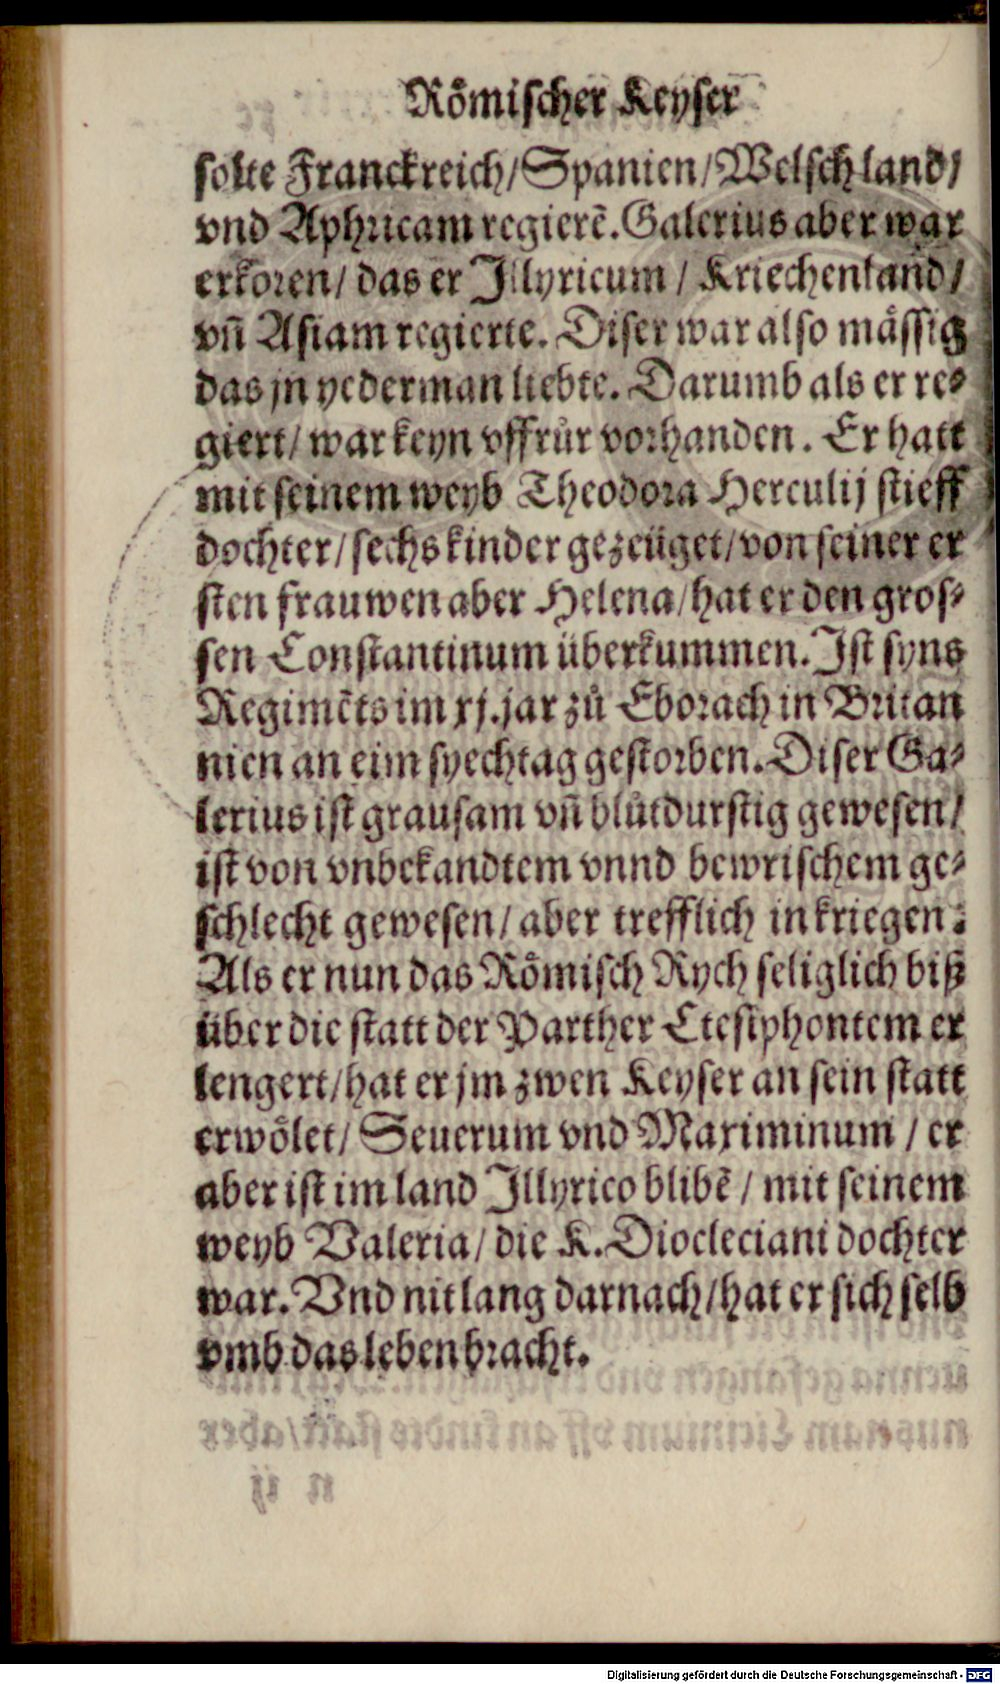 Roͤmischer Keyser
solte Franckreich/Spanien/Welschland/
vnd Aphricam regierẽ. Galerius aber war
erkoren/ das er Jllyricum / Kriechenland/
vñ Asiam regierte. Diser war also maͤssig
das jn yederman liebte. Darumb als er re⸗
giert/ war keyn vffruͦr vorhanden. Er hatt
mit seinem weyb Theodora Herculij stieff
dochter/ sechs kinder gezeüget/ von seiner er
sten frauwen aber Helena/ hat er den gros⸗
sen Constantinum überkummen. Jst syns
Regimẽts im xj. jar zuͦ Eborach in Britan
nien an eim syechtag gestorben. Diser Ga⸗
lerius ist grausam vñ bluͦtdurstig gewesen/
ist von vnbekandtem vnnd bewrischem ge⸗
schlecht gewesen/ aber trefflich in kriegen:
Als er nun das Roͤmisch Rych seliglich biß
über die statt der Parther Ctesiphontem er
lengert/ hat er jm zwen Keyser an sein statt
erwoͤlet/ Seuerum vnd Maximinum / er
aber ist im land Jllyrico blibẽ / mit seinem
weyb Valeria/ die K. Diocleciani dochter
war. Vnd nit lang darnach/ hat er sich selb
vmb das leben bracht.
Digitalisierung gefördert durch die Deutsche Forschungsgemeinschaft - DFG